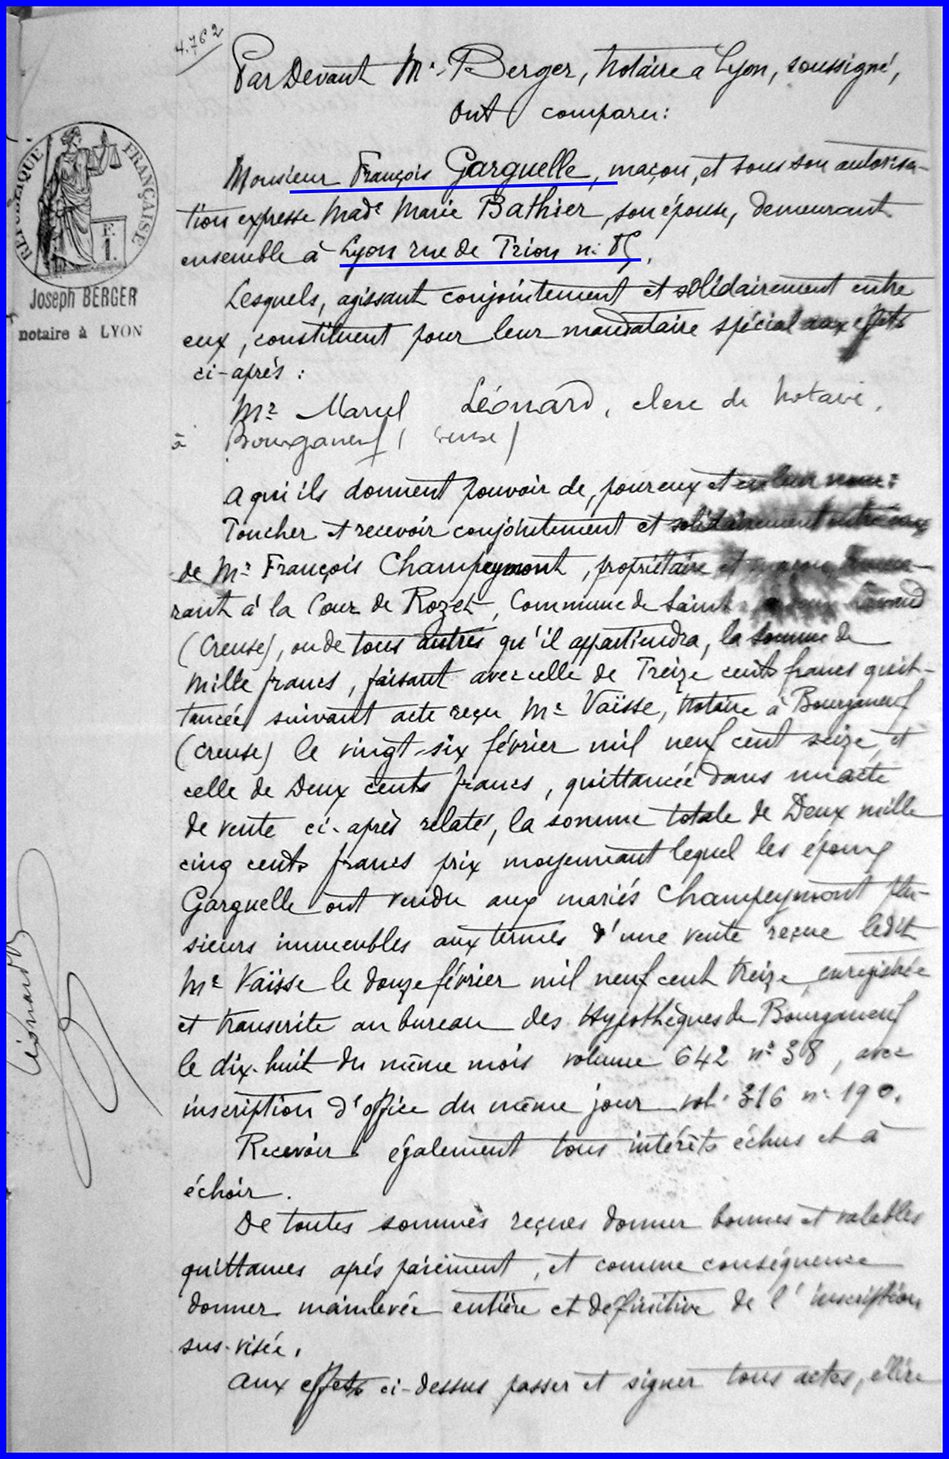 4.762
Par Devant Me Berger, Notaire à Lyon, soussigné,
Ont comparu:
RÉPUBLIQUE FRANÇAISE
Joseph BERGER
notaire à LYON
Monsieur François Garguelle, maçon, et sous son autorisa-
tion expresse Made Marie Bathier, son épouse, demeurant
ensemble à Lyon rue de Trion n: 85,
Lesquels, agissant conjointement et solidairement entre
eux, constituent pour leur mandataire spécial aux effets
ci-après :
Mr Marcel Léonard, clerc de notaire,
à Bourganeuf (Creuse)
A qui ils donnent pouvoir de, pour eux et en leur nom:
Toucher et recevoir conjointement et solidairement entre eux
de Mr François Champeymont, propriétaire et maçon, demeu-
rant à la Cour de Rozet, Commune de Saint
(Creuse), ou de tous autres qu'il appartiendra, la somme de
Mille francs, faisant avec celle de Treize cents francs quit-
tancée suivant acte reçu Me Vaïsse, Notaire à Bourganeuf
(Creuse) le vingt-six février mil neuf cent seize, et
celle de Deux cents francs, quittancée dans un acte
de vente ci-après relaté, la somme totale de Deux mille
cinq cents francs prix moyennant lequel les époux
Garguelle ont vendu aux mariés Champeymont plu-
sieurs immeubles aux termes d'une vente reçue ledit
Me Vaïsse le douze février mil neuf cent treize, enregistrée
et transcrite au bureau des Hypothèques de Bourganeuf
le dix-huit du même mois volume 642 n° 38, avec
inscription d'office du même jour vol. 316 n: 190.
Recevoir également tous intérêts échus et à
échoir.
De toutes sommes reçues donner bonnes et valables
quittances après paiement, et comme conséquence
donner mainlevée entière et définitive de l'inscription
sus-visée.
Aux effets ci-dessus passer et signer tous actes, élire
Léonard